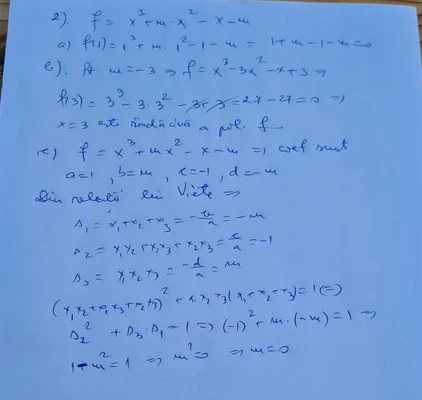 2). f = x³ + m·x² - x - m
a) f(1) = 1³ + m·1² - 1 - m = 1 + m - 1 - m = 0
b). pt m = -3 ⇒ f = x³ - 3x² - x + 3 ⇒
f(3) = 3³ - 3·3² - 3 + 3 = 27 - 27 = 0 ⇒
x = 3 este rădăcină a pol. f
c) f = x³ + mx² - x - m ⇒ coef sunt
a = 1, b = m, c = -1, d = -m
Din relațiile lui Viète ⇒
s₁ = x₁ + x₂ + x₃ = -b/a = -m
s₂ = x₁x₂ + x₁x₃ + x₂x₃ = c/a = -1
s₃ = x₁x₂x₃ = -d/a = m
(x₁x₂ + x₁x₃ + x₂x₃)² + x₁x₂x₃(x₁ + x₂ + x₃) = 1 (=)
s₂² + s₃·s₁ = 1 ⇒ (-1)² + m·(-m) = 1 ⇒
1 - m² = 1 ⇒ m² = 0 ⇒ m = 0